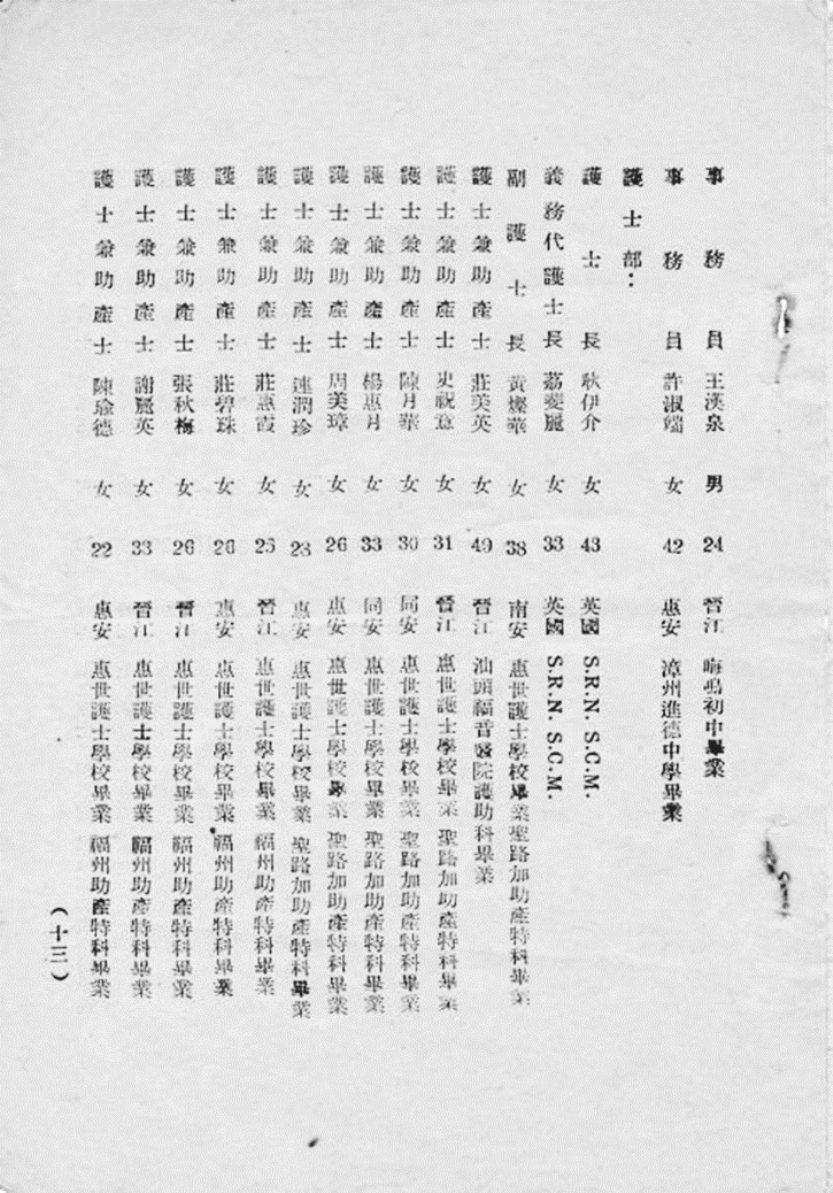 事務員 王漢泉 男 24 晉江 晦鳴初中畢業
事務員 許淑端 女 42 惠安 漳州進德中學畢業
護士部：
護士長 耿伊介 女 43 英國 S.R.N. S.C.M.
義務代護士長 荔斐麗 女 33 英國 S.R.N. S.C.M.
副護士長 黃燦華 女 38 南安 惠世護士學校畢業聖路加助產特科畢業
護士兼助產士 莊美英 女 49 晉江 汕頭福音醫院護助科畢業
護士兼助產士 史祝 女 31 晉江 惠世護士學校畢業 聖路加助產特科畢業
護士兼助產士 陳月華 女 30 同安 惠世護士學校畢業 聖路加助產特科畢業
護士兼助產士 楊惠月 女 33 同安 惠世護士學校畢業 聖路加助產特科畢業
護士兼助產士 周美璋 女 26 惠安 惠世護士學校畢業 聖路加助產特科畢業
護士兼助產士 連潤珍 女 23 惠安 惠世護士學校畢業 聖路加助產特科畢業
護士兼助產士 莊惠霞 女 25 晉江 惠世護士學校畢業 福州助產特科畢業
護士兼助產士 莊碧珠 女 26 惠安 惠世護士學校畢業 福州助產特科畢業
護士兼助產士 張秋梅 女 26 晉江 惠世護士學校畢業 福州助產特科畢業
護士兼助產士 謝麗英 女 33 晉江 惠世護士學校畢業 福州助產特科畢業
護士兼助產士 陳瑜德 女 22 惠安 惠世護士學校畢業 福州助產特科畢業
（十三）